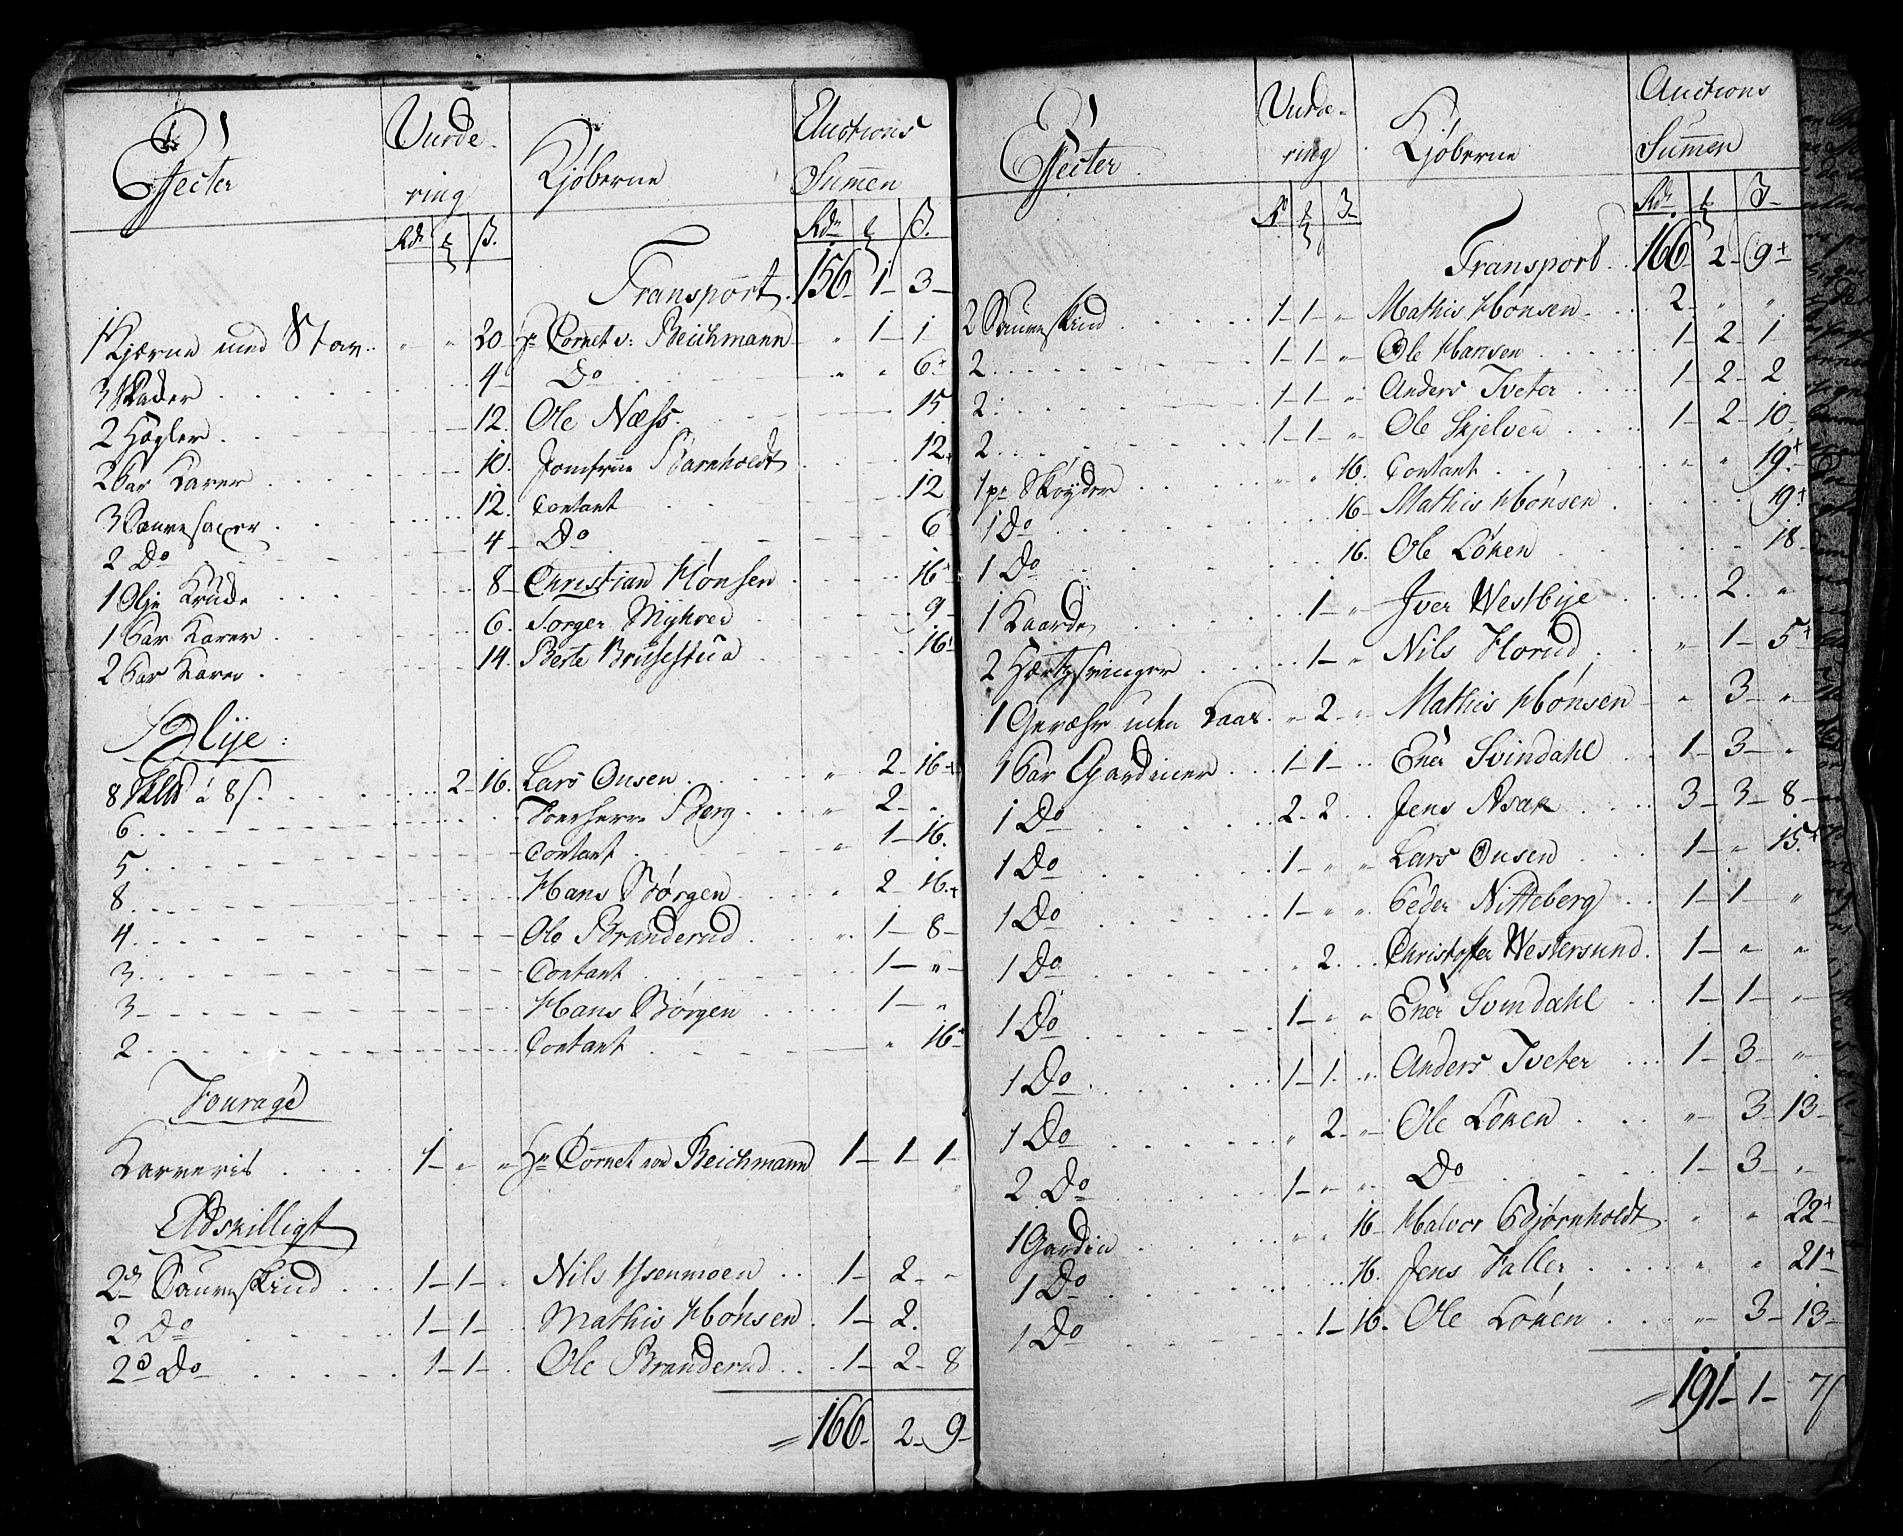 Effecter Vurde- Kjøberne Auctions
ring Sumen
Rdr ß. Rdr ß.
Transport. 156 - 1 - 3 -
1 Kjærne med Stav. 20 Hr Cornet v: Beichmann 1 - 1
3 Skader 4 - Do 6 +
2 Hegler 12. Ole Næss 15
2 Par Karer 10. Jomfrue Barnholdt 12 +
3 Saugesaxer 12. Contant 12
2 Do 4 - Do 6
1 Olje Krukke 8 - Christian Hønsen 16 +
1 Par Karer 6. Torger Myhrer 9 -
2 Par Karer 14. Berte Brusestua 16 +
Talje:
8 Skld á 8 ß. 2 - 16. Lars Onsen 2 - 16 +
6 Foerherre Berg 2 -
5 Contant 1 - 16.
8 Hans Børgen 2 - 16 +
4 Ole Branderud 1 - 8 -
3 Contant 1 - " -
3 Hans Børgen 1 - "
2 Contant " 16 +
Fourage
Karreris 1 - " " Hr Cornet von Beichmann 1 - 1 - 1 -
Adskilligt
2de Saueskind 1 - 1 - " Nils Ysenmoen 1 - 2 - "
2 Do 1 - 1 - Mathis Hønsen 1 - 2.
2 Do 1 - 1 - Ole Branderud 1 - 2 - 8
= 166 - 2 - 9 -
Effecter Vurde- Kjøberne Auctions
ring Summen
Rdr ß Rdr ß
Transport 166 - 2 - 9 +
2 Saueskind 1 - 1 - " Mathis Hønsen 2 - " "
2 1 - 1 - " Ole Hansen 1 - 2 - 1
2 1 - 1 - " Anders Tveter 1 - 2 - 2
2 1 - 1 - " Ole Skjelven 1 - 2 - 10
1 pr Skøyder " " 16. Contant " " 19 +
1 Do 16 - Mathis Hønsen 19 +
1 Do 16. Ole Løken 18 -
1 Kaarde 1 - " Iver Westbye 2. "
2 1 - " Nils Horud " 1 - 5 +
1 Geværh uden Laas " 2 - " Mathis Hønsen " 3 - "
1 Par Gardiner 1 - 1 - Ener Svindahl 1 - 3 - "
1 Do 2 - 2 Jens Asak 3 - 3 - 8 -
1 Do 1 - " " Lars Onsen 1 - " 15 +
1 Do 1 - " " Peder Nitteberg 1 - 1 - "
1 Do " 2. Christoffer Westersund. 1 - " "
1 Do 1 - " " Ener Svindahl 1 - 1 - "
1 Do 1 - 1. " Anders Tveter 1 - 3 - "
1 Do " 2 - " Ole Løken " 3 - 13 -
2 Do 1 - " " Do 1 - 3 - "
1 Gardin " " 16 Halvor Bjørnholdt " " 22 +
1 Do 16. Jens Faller " " 21 +
1 Do 1 - 16. Ole Løken " 3 - 13 -
= 191 - 1 - 7